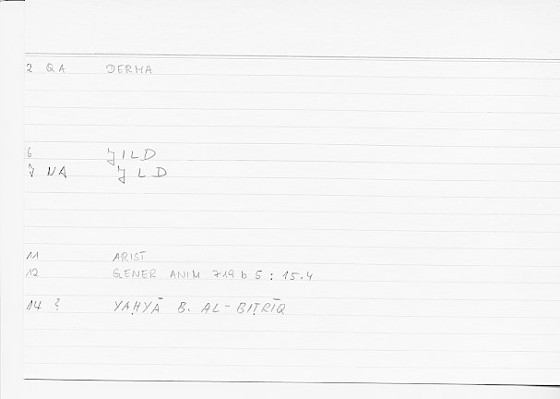 2 QA DERMA
6 ǦILD
7 NA ǦLD
11 ARIST
12 GENER ANIM 719 b 5 : 15.4
14 ? YAḤYĀ B. AL-BIṬRĪQ